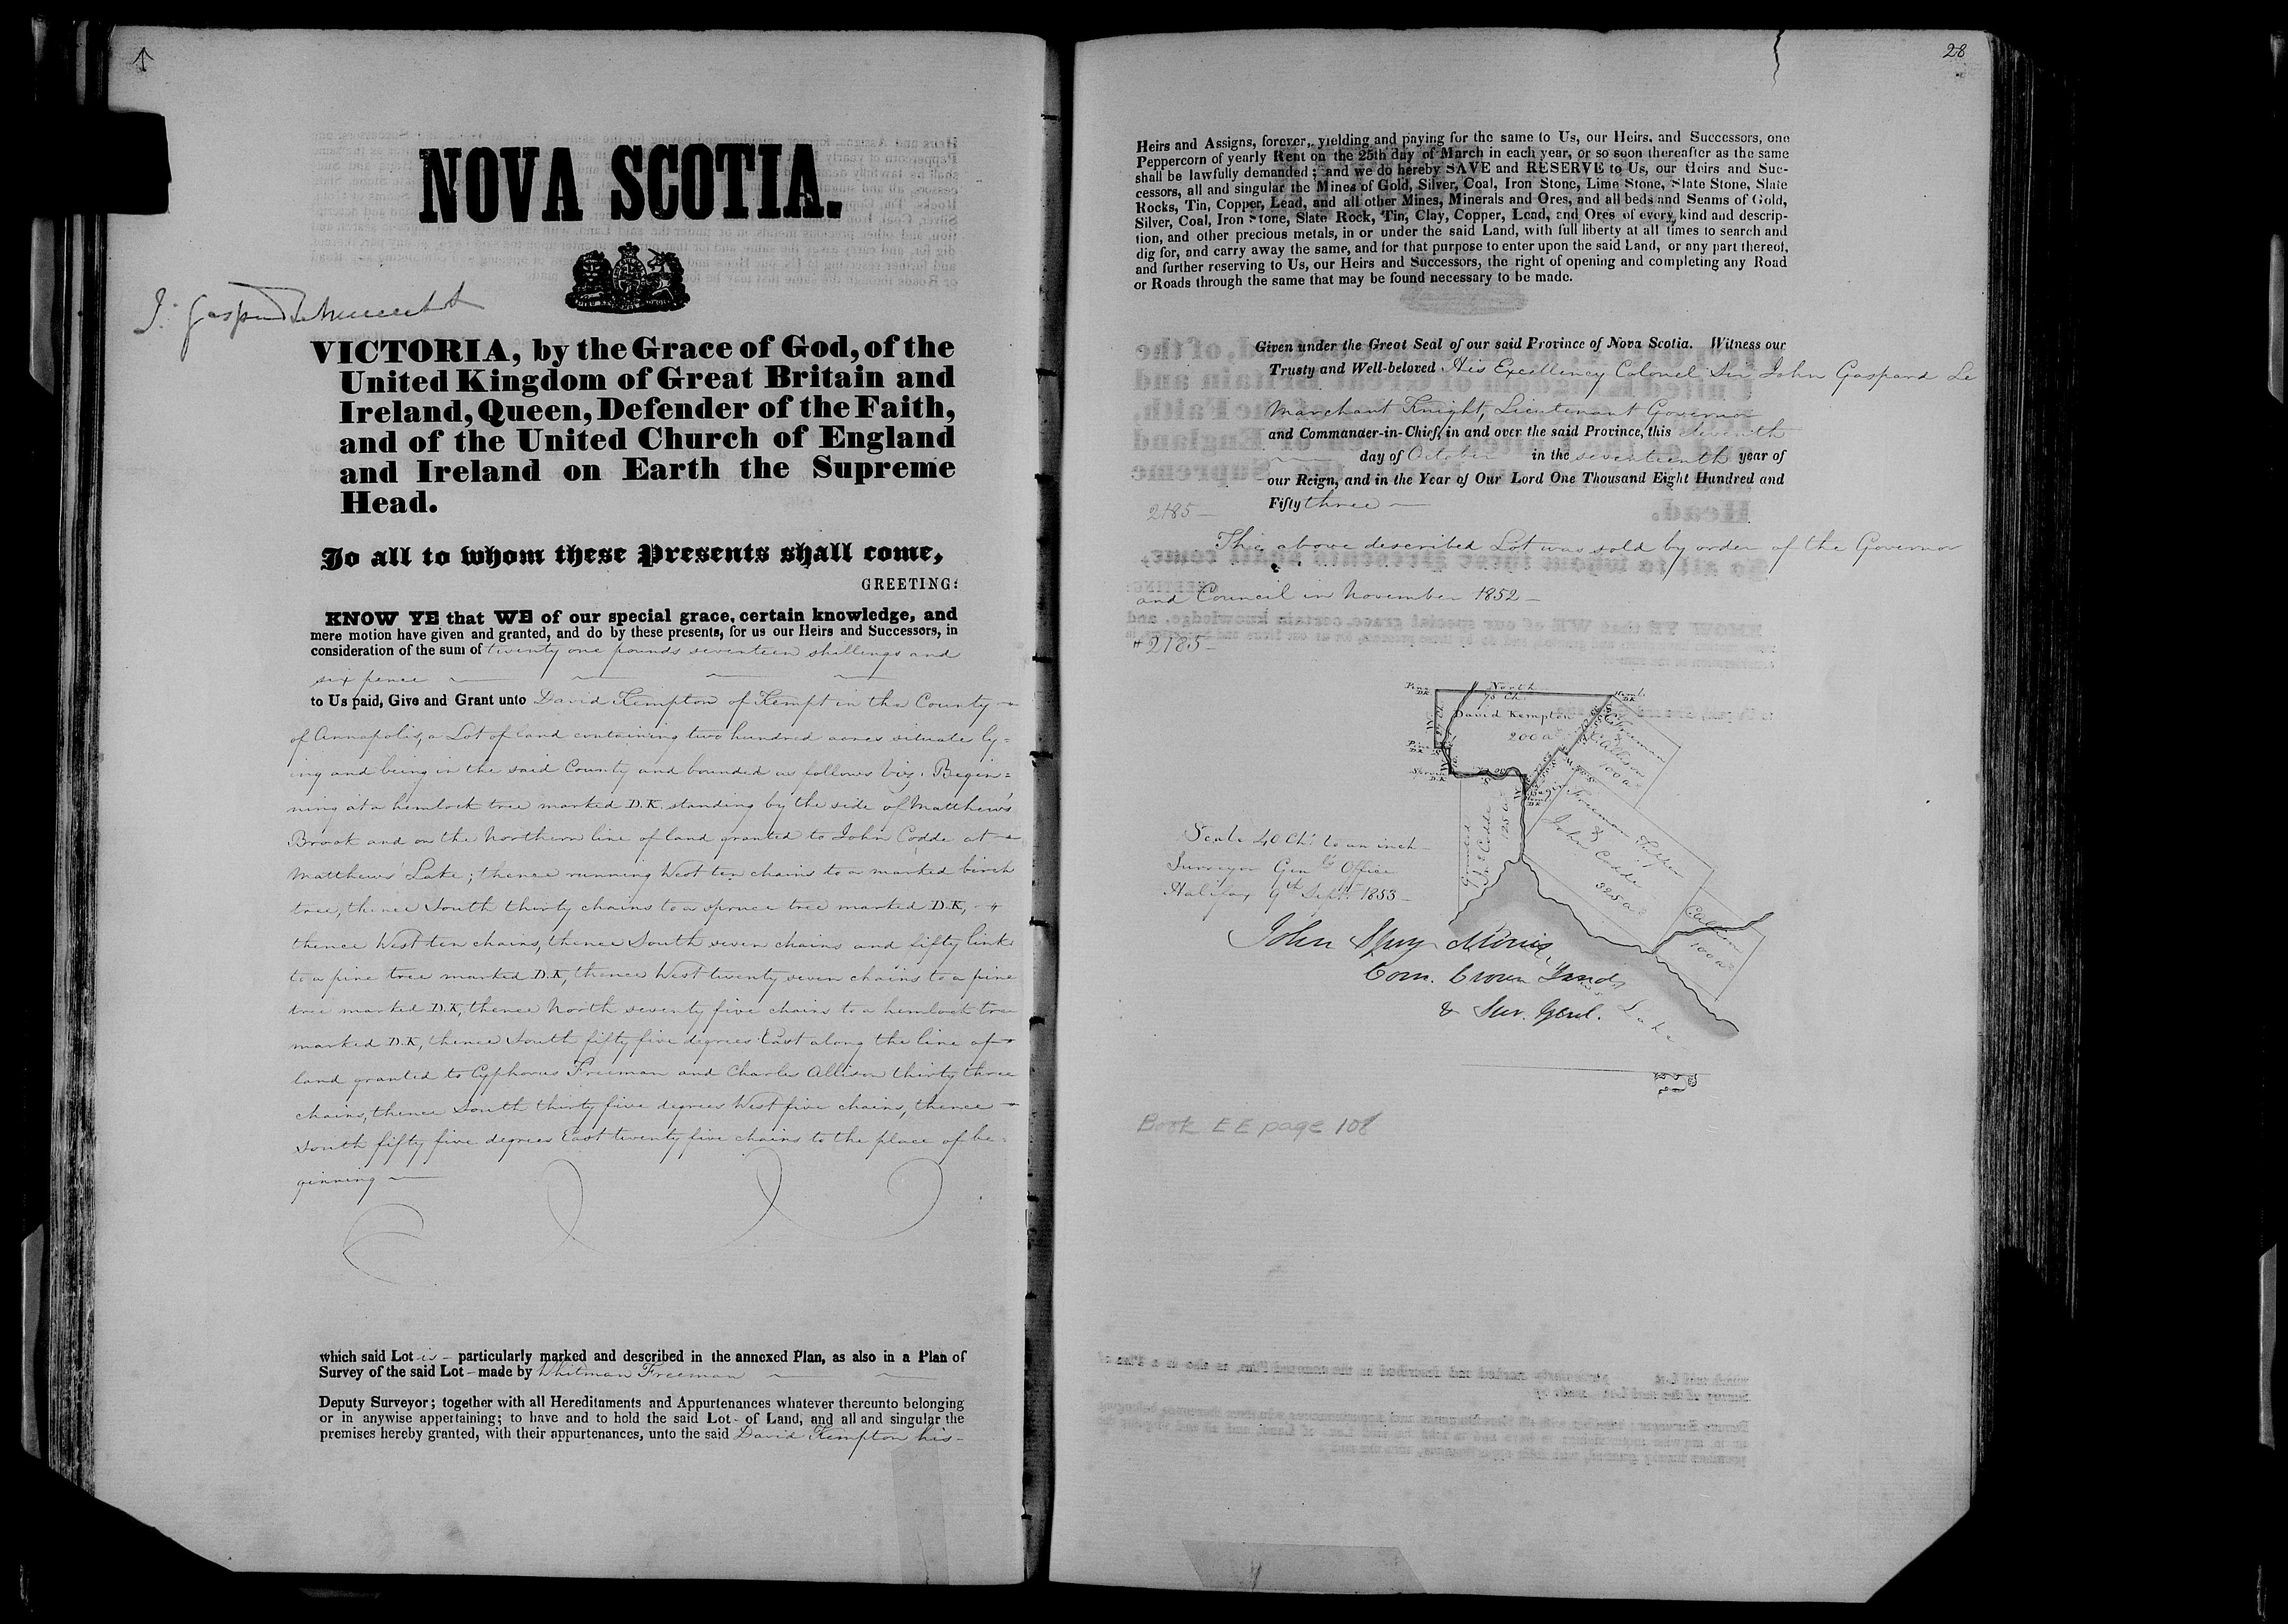 NOVA SCOTIA.
J. Gaspard Le Marchant
VICTORIA, by the Grace of God, of the
United Kingdom of Great Britain and
Ireland, Queen, Defender of the Faith,
and of the United Church of England
and Ireland on Earth the Supreme
Head.
To all to whom these Presents shall come,
GREETING:
KNOW YE that WE of our special grace, certain knowledge, and
mere motion have given and granted, and do by these presents, for us our Heirs and Successors, in
consideration of the sum of twenty one pounds seventeen shillings and
six pence
to Us paid, Give and Grant unto David Kempton of Kempt in the County
of Annapolis, a Lot of land containing two hundred acres situate ly=
ing and being in the said County and bounded as follows Viz: Begin=
ning at a hemlock tree marked D.K. standing by the side of Matthew's
Brook and on the Northern line of land granted to John Codde at
Matthews' Lake; thence running West ten chains to a marked birch
tree, thence South thirty chains to a spruce tree marked D.K,
thence West ten chains, thence South seven chains and fifty links
to a pine tree marked D.K, thence West twenty seven chains to a pine
tree marked D.K, thence North seventy five chains to a hemlock tree
marked D.K, thence South fifty five degrees East along the line of
land granted to Cyphorus Freeman and Charles Allison thirty three
chains, thence South thirty five degrees West five chains, thence
South fifty five degrees East twenty five chains to the place of be=
ginning
which said Lot is particularly marked and described in the annexed Plan, as also in a Plan of
Survey of the said Lot made by Whitman Freeman
Deputy Surveyor; together with all Hereditaments and Appurtenances whatever thereunto belonging
or in anywise appertaining; to have and to hold the said Lot of Land, and all and singular the
premises hereby granted, with their appurtenances, unto the said David Kempton his
28
Heirs and Assigns, forever, yielding and paying for the same to Us, our Heirs, and Successors, one
Peppercorn of yearly Rent on the 25th day of March in each year, or so soon thereafter as the same
shall be lawfully demanded; and we do hereby SAVE and RESERVE to Us, our Heirs and Suc-
cessors, all and singular the Mines of Gold, Silver, Coal, Iron Stone, Lime Stone, Slate Stone, Slate
Rocks, Tin, Copper, Lead, and all other Mines, Minerals and Ores, and all beds and Seams of Gold,
Silver, Coal, Iron Stone, Slate Rock, Tin, Clay, Copper, Lead, and Ores of every kind and descrip-
tion, and other precious metals, in or under the said Land, with full liberty at all times to search and
dig for, and carry away the same, and for that purpose to enter upon the said Land, or any part thereof,
and further reserving to Us, our Heirs and Successors, the right of opening and completing any Road
or Roads through the same that may be found necessary to be made.
Given under the Great Seal of our said Province of Nova Scotia. Witness our
Trusty and Well-beloved His Excellency Colonel Sir John Gaspard Le
Marchant Knight, Lieutenant Governor
and Commander-in-Chief, in and over the said Province, this seventh
day of October in the seventeenth year of
our Reign, and in the Year of Our Lord One Thousand Eight Hundred and
Fifty three
2185
The above described Lot was sold by order of the Governor
and Council in November 1852
# 2185
North
75 Ch.
Pine
DK
Heml.
DK
David Kempton
200 a
Freeman
& C. Allison
100 a
Pine
DK
Spruce
D.K
Granted
Jn. Codde
125 a
Freeman Tupper
& John Codde
325 a
100 a
Lake
Scale 40 Chs to an inch
Surveyor Genls Office
Halifax 9th Sept. 1853
John Spry Morris
Com. Crown Lands
& Sur. Genl.
Book EE page 108